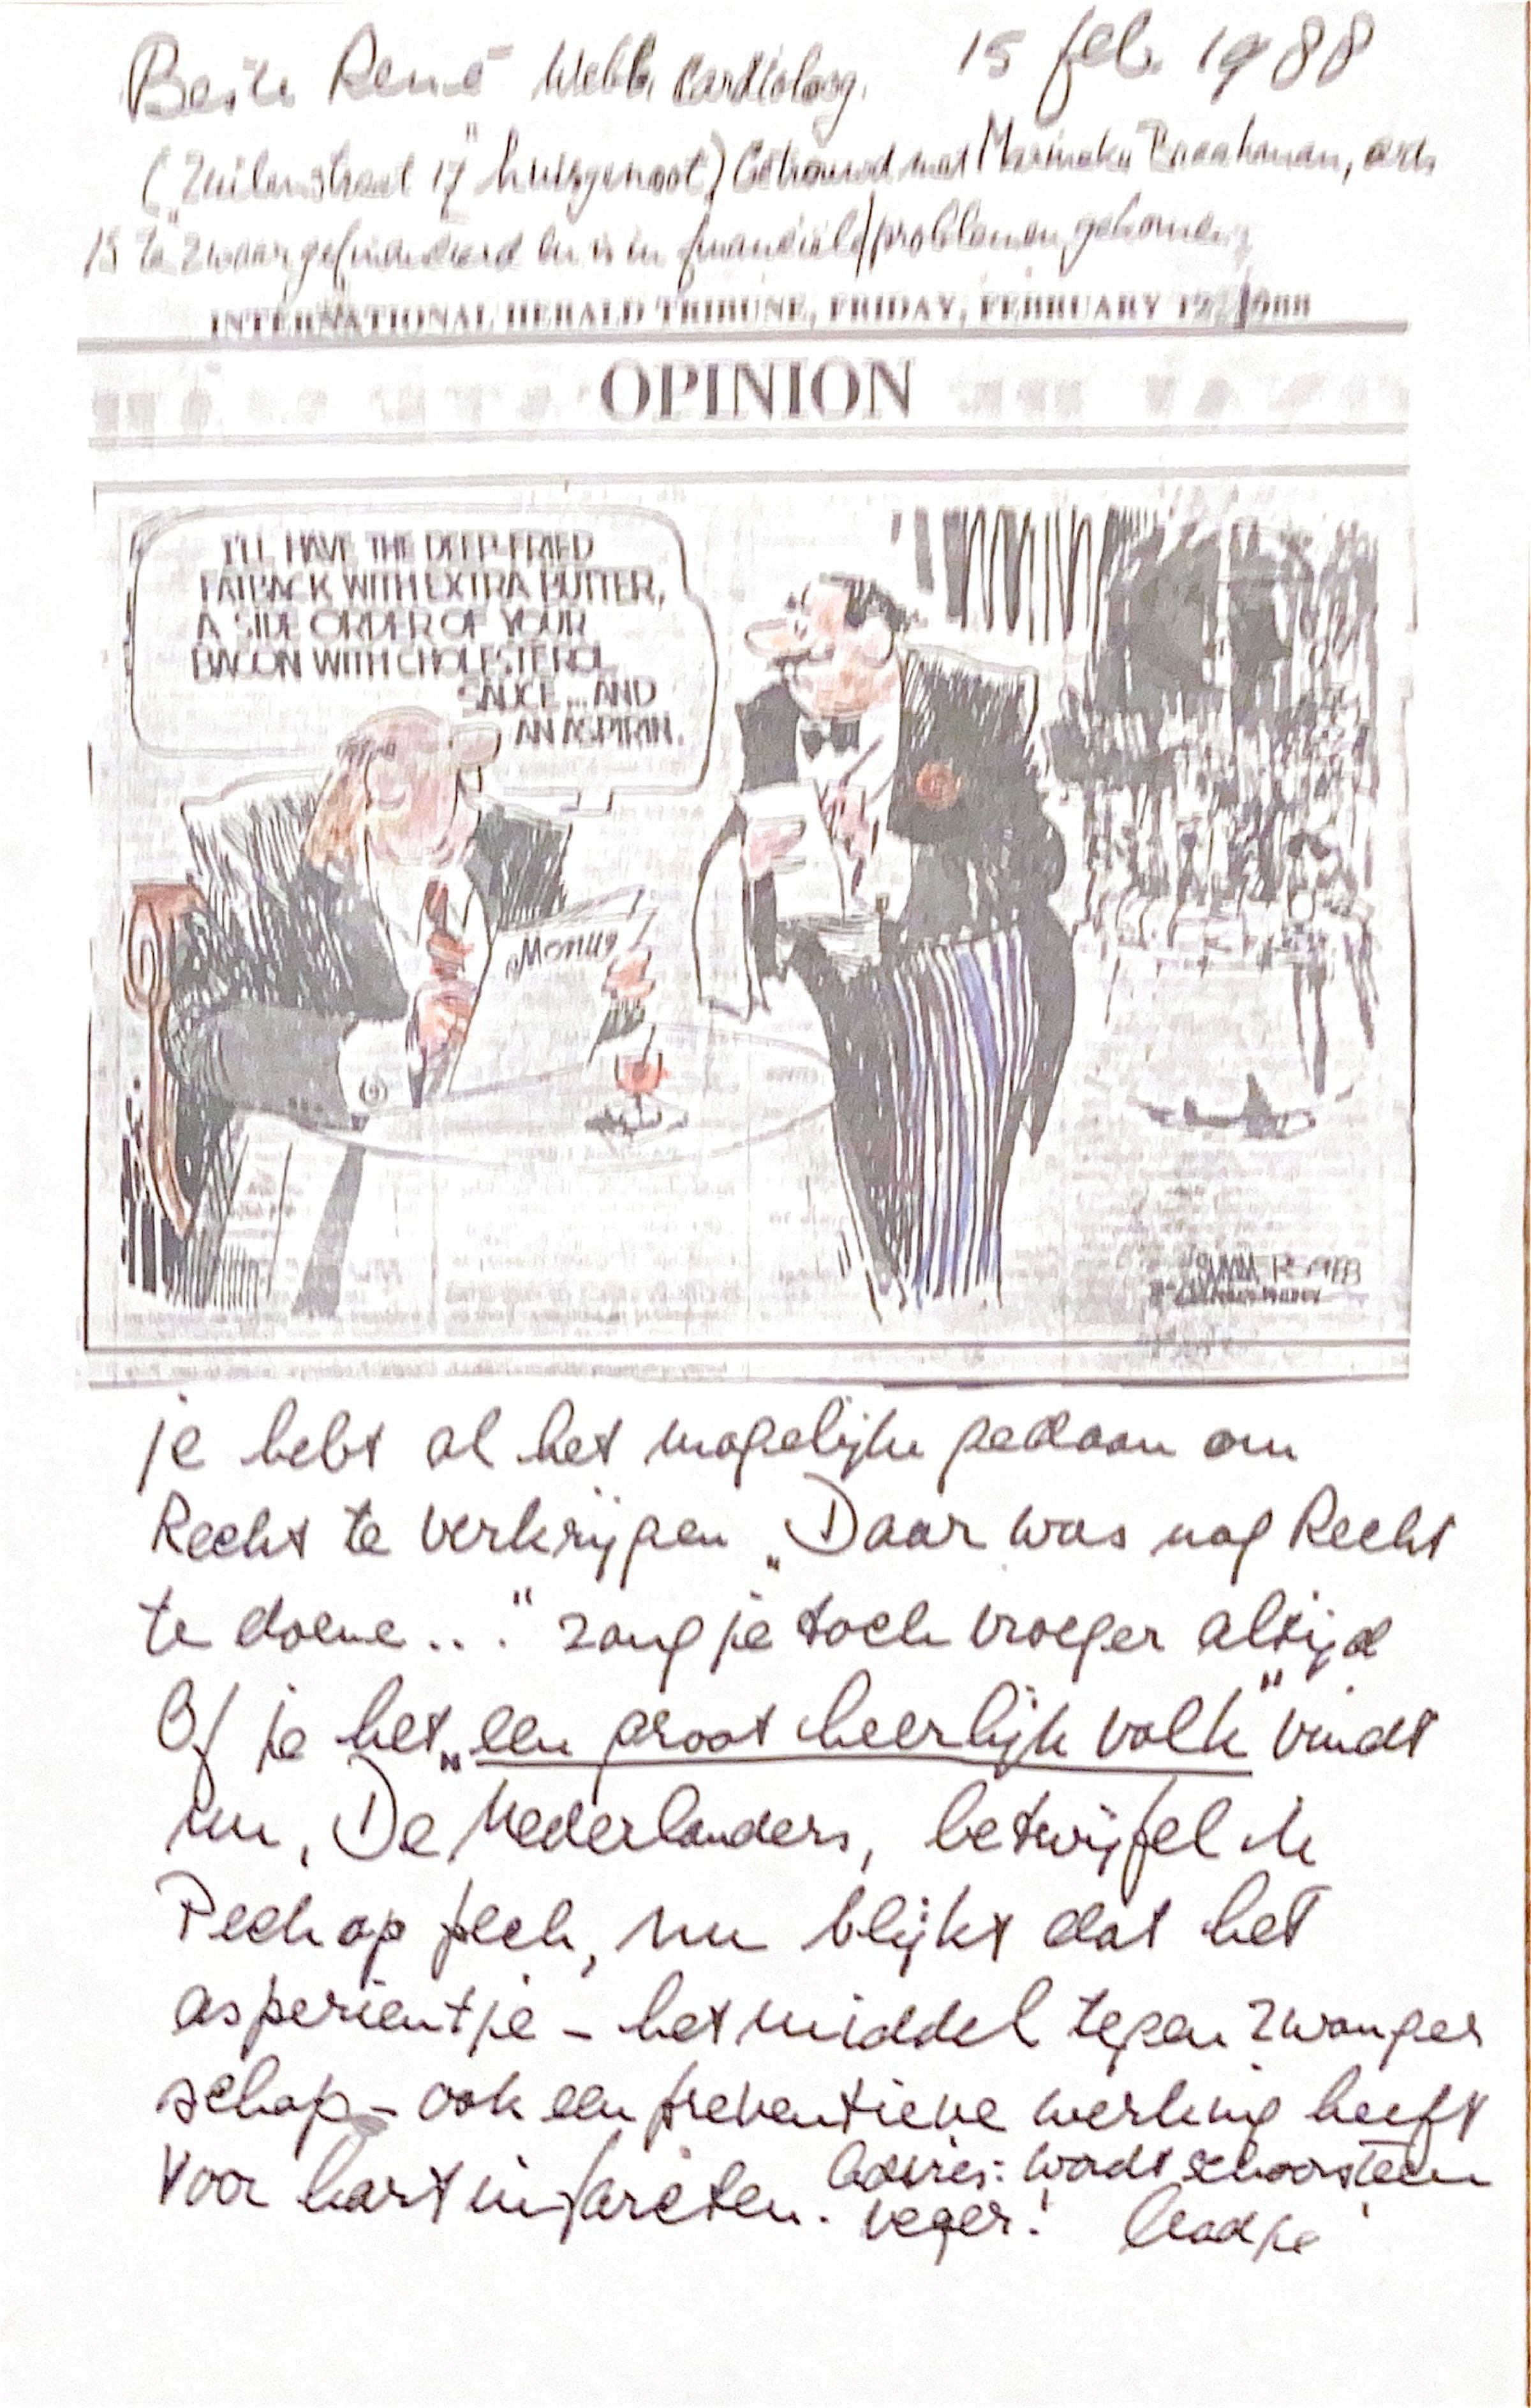 Beste René Webb, Cardioloog. 15 feb. 1988
("Zuilenstraat 17" huisgenoot) Getrouwd met Marineke Braakman, arts
is te zwaar gefinancierd en is in financiële problemen gekomen
INTERNATIONAL HERALD TRIBUNE, FRIDAY, FEBRUARY 12, 1988
OPINION
I'LL HAVE THE DEEP-FRIED
FATBACK WITH EXTRA BUTTER,
A SIDE ORDER OF YOUR
BACON WITH CHOLESTEROL
SAUCE... AND
AN ASPIRIN.
Menu
je hebt al het mogelijke gedaan om
Recht te verkrijgen „Daar was nog Recht
te doene..." zong je toch vroeger altijd
Of je het „een groot heerlijk volk" vindt
nu, De Nederlanders, betwijfel ik
Pech op pech, nu blijkt dat het
asperientje - het middel tegen zwanger
schap - ook een preventieve werking heeft
voor hartinfarcten. Advies: wordt schoorsteen
veger!